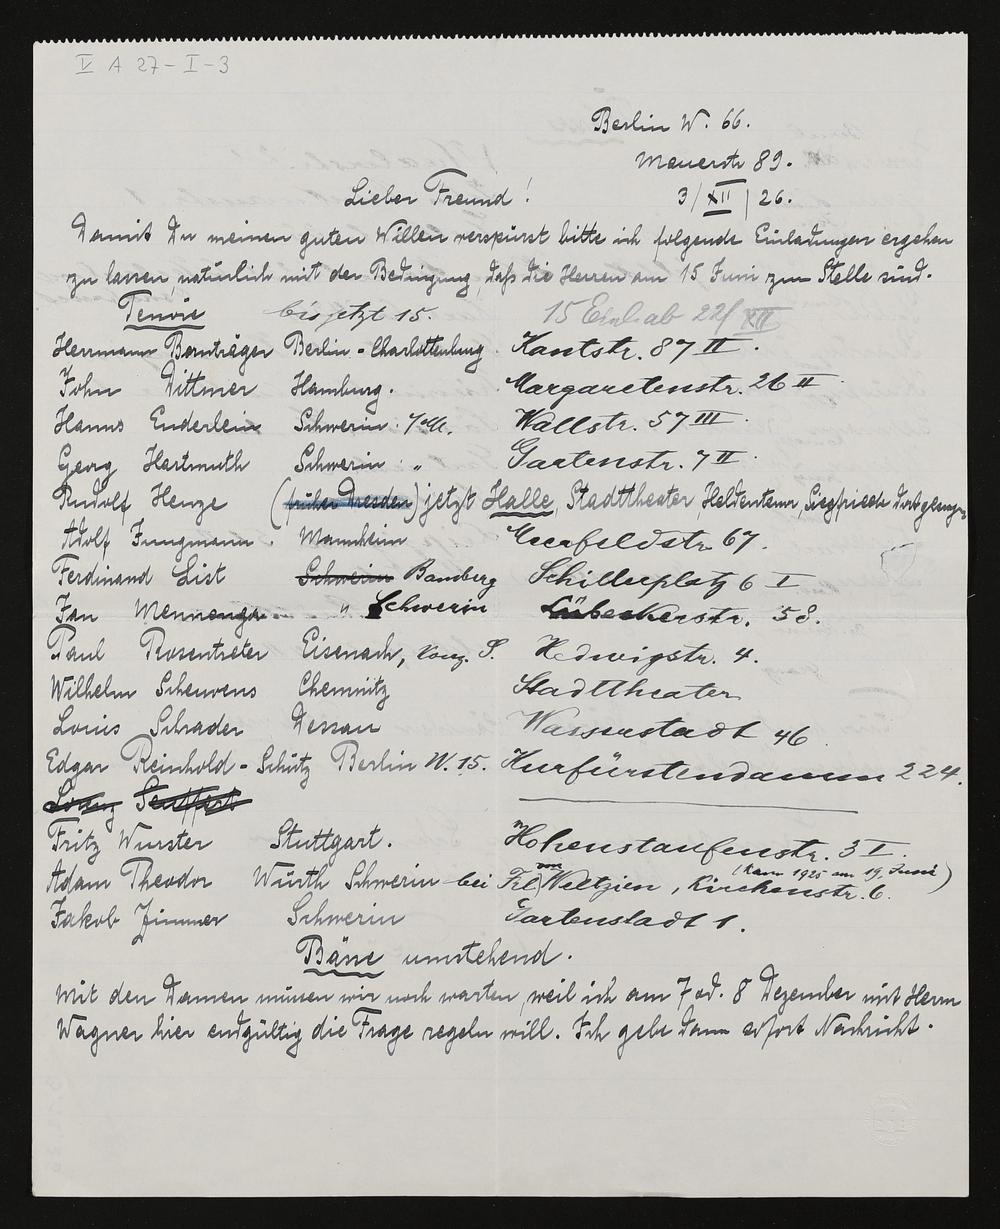 V A 27-I-3
Berlin W. 66.
Mauerstr 89.
Lieber Freund! 3/XII/26.
Damit Du meinen guten Willen verspürst bitte ich folgende Einladungen ergehen
zu lassen, natürlich mit der Bedingung, daß die Herren am 15 Juni zur Stelle sind.
Tenöre bis jetzt 15. 15 Einl. ab 22/XII
Herrmann Bornträger Berlin-Charlottenburg. Kantstr. 87 II.
John Dittmer Hamburg. Margaretenstr. 26 II
Hanns Enderlein Schwerin. i/M. Wallstr. 57 III.
Georg Hartmuth Schwerin. " Gartenstr. 7 II.
Rudolf Henze (früher Dresden) jetzt Halle, Stadttheater, Heldentenor, Siegfriede dort
Adolf Jungmann. Mannheim 67.
Ferdinand List Schwerin Bamberg Schillerplatz 6 I
Jan Mennenga " Schwerin Lübeckerstr. 58.
Paul Rosentreter Eisenach, Hedwigstr. 4.
Wilhelm Scheuvens Chemnitz Stadttheater
Louis Schrader Dessau Wasserstadt 46
Edgar Reinhold-Schütz Berlin W. 15. Kurfürstendamm 224.
Fritz Wurster Stuttgart. Hohenstaufenstr. 3 I.
Adam Theodor Würth Schwerin bei Frl. von Weltzien, Kirchenstr. 6. (Kam 1925 am 19. Juni)
Jakob Zimmer Schwerin Gartenstadt 1.
Bässe umstehend.
Mit den Damen müssen wir noch warten, weil ich am 7 od. 8 Dezember mit Herrn
Wagner hier endgültig die Frage regeln will. Ich gebe dann sofort Nachricht.